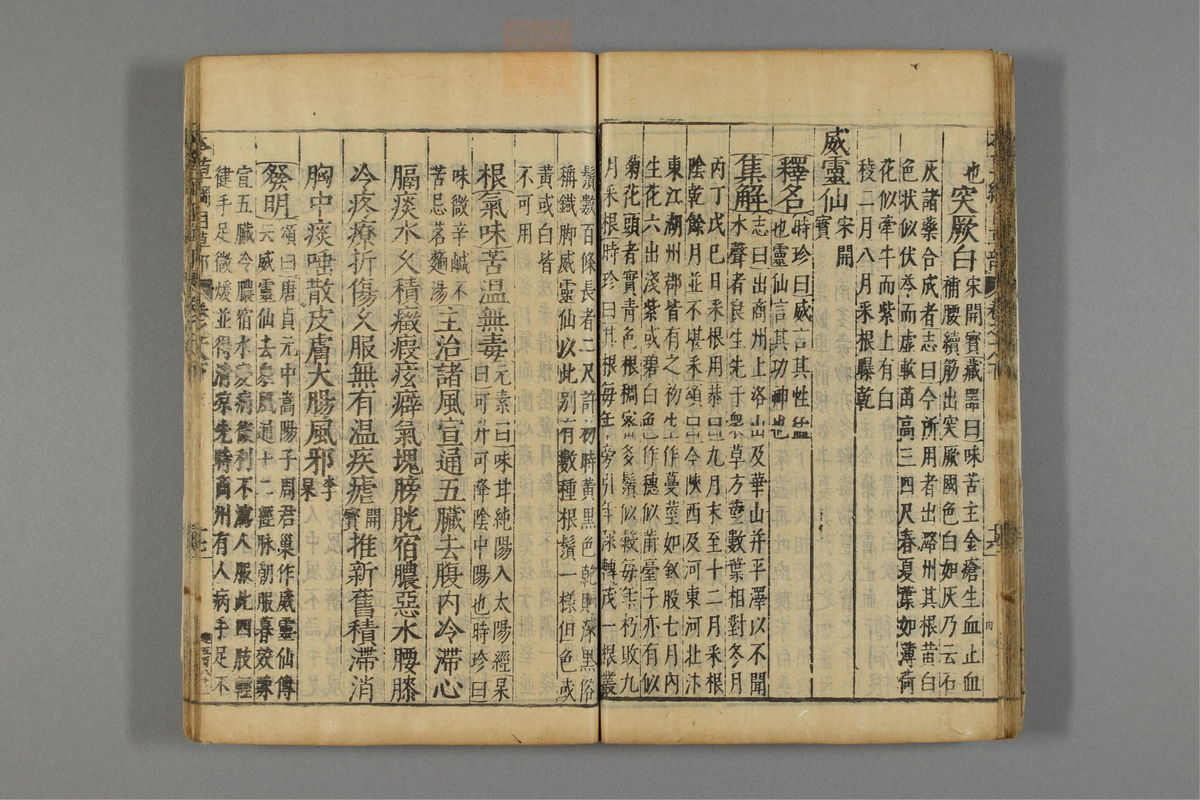 也突厥白宋開寶藏器曰味苦主金瘡生血止血
補腰續筋出突厥國色白如灰乃云石
灰諸藥合成者志曰今所用者出潞州其根黄白
色状似伏苓而虛軟苗高三四尺春夏葉如薄荷
花似牽牛而紫上有白
稜二月八月釆根曝乾
威靈仙宋開
寶
釋名時珍曰威言其性猛
也靈仙言其功神也
集解志曰出商州上洛山及華山并平澤以不聞
水聲者良生先于衆草方莖數葉相對冬月
丙丁戊巳日釆根用恭曰九月末至十二月釆根
陰乾餘月並不堪釆頌曰今陜西及河東河北汴
東江湖州郡皆有之初生作蔓莖如釵股七月内
生花六出淺紫或碧白色作穗似莆臺子亦有似
菊花頭者實青色根稠宻多鬚似榖每年朽敗九
月釆根時珍曰其根每年旁引年深轉茂一根叢
鬚數百條長者二尺許初時黄黑色乾則深黑俗
稱鐵脚威靈仙以此别有數種根鬚一様但色或
黄或白皆
不可用
根氣味苦温無毒元素曰味甘純陽入太陽經杲
曰可升可降陰中陽也時珍曰
味微辛鹹不
苦忌茗麵湯主治諸風宣通五臟去腹内冷滯心
膈痰水乆積癥瘕痃癖氣塊膀胱宿膿惡水腰膝
冷疼療折傷乆服無有温疾瘧開
寶推新舊積滯消
胸中痰唾散皮膚大腸風邪李
杲
發明頌曰唐貞元中嵩陽子周君巢作威靈仙傳
云威靈仙去衆風通十二經脉朝服暮效䟽
宣五臟冷膿宿水變病微利不瀉人服此四肢輕
健手足微煖並得清凉先時商州有人病手足不